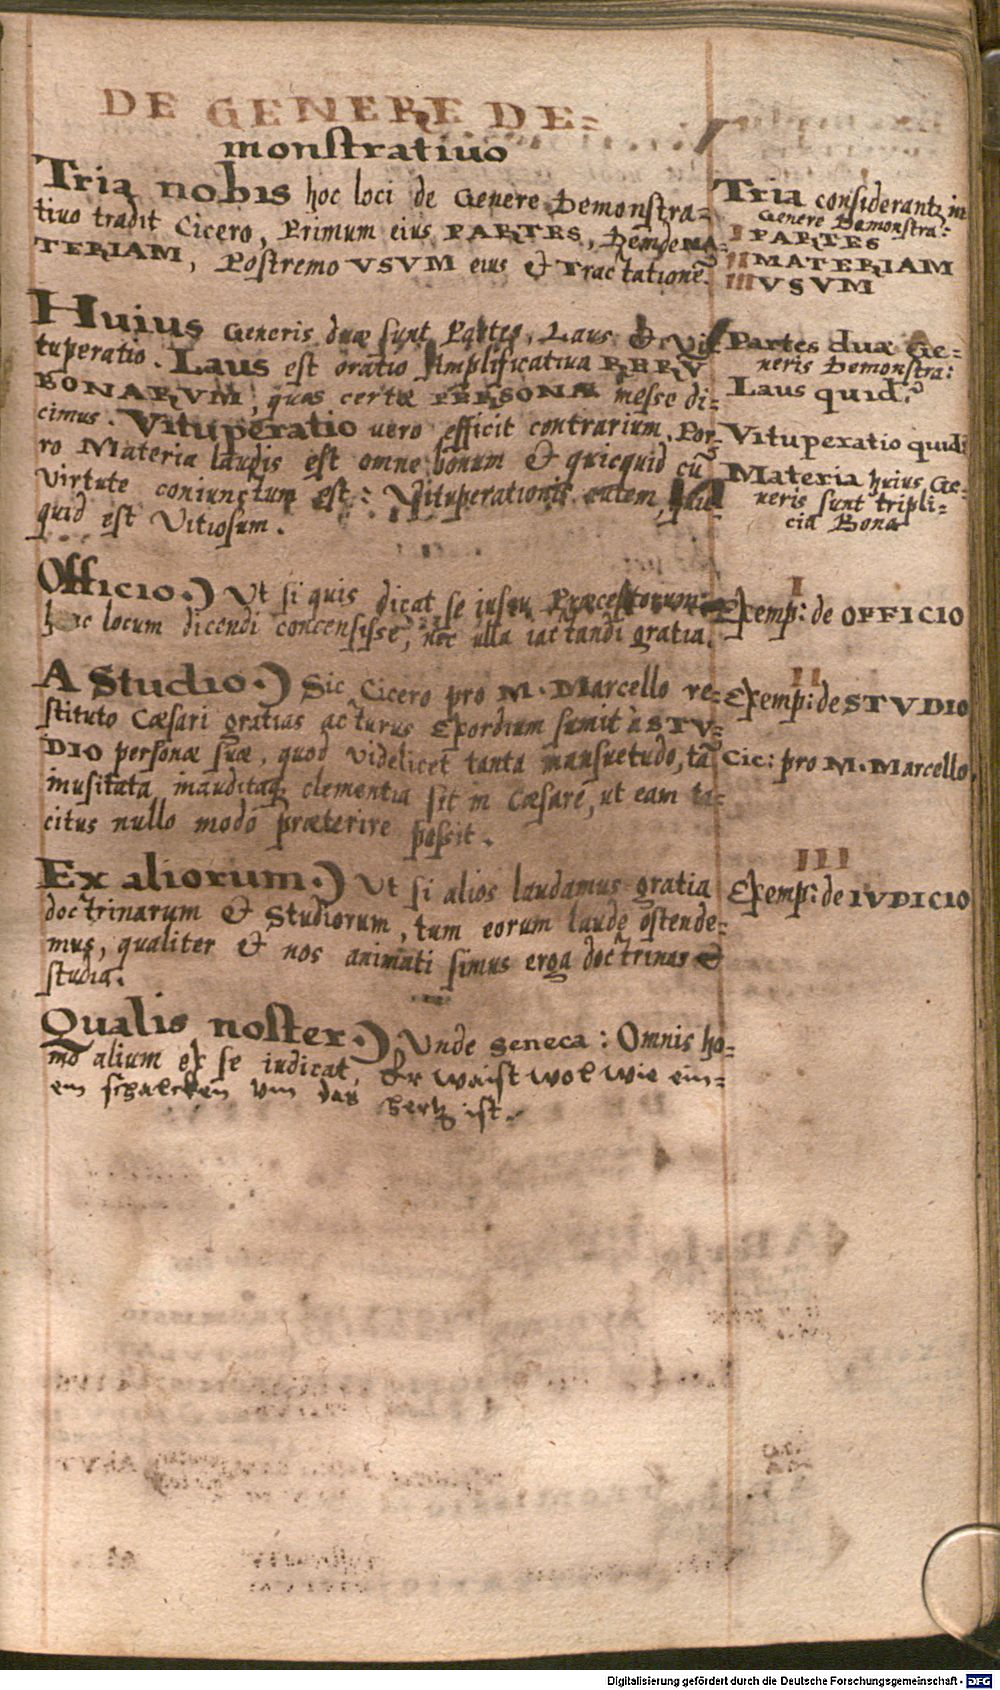 DE GENERE DE=
monstratiuo
Tria nobis hoc loci de Genere Demonstra=
tiuo tradit Cicero, Primum eius PARTES, Deinde MA=
TERIAM, Postremo VSVM eius & Tractationē.
Huius Generis duæ sunt Partes, Laus & Vi=
tuperatio. Laus est oratio Amplificatiua RERV̄
BONARVM, quas certæ PERSONÆ inesse di=
cimus. Vituperatio uero efficit contrarium. Por=
ro Materia laudis est omne bonum & quicquid cū
virtute coniunctum est: Vituperationis autem, quic
quid est Vitiosum.
Officio.) Vt si quis dicat se iussu Præceptorum
hunc locum dicendi concensisse, nec ulla iactandi gratia.
A Studio.) Sic Cicero pro M. Marcello re=
stituto Cæsari gratias acturus Exordium sumit à STV=
DIO personæ suæ, quod videlicet tanta mansuetudo, tā
inusitata, inauditaq; clementia sit in Cæsare, ut eam ta=
citus nullo modo præterire possit.
Ex aliorum.) Vt si alios laudamus gratia
doctrinarum & Studiorum, tum eorum laude ostende=
mus, qualiter & nos animati simus erga doctrinas &
studia.
Qualis noster.) Vnde Seneca: Omnis ho=
mo alium ex se iudicat, Er waist wol wie ein=
em schalcken vm das hertz ist.
Tria considerantur in
Genere Demonstra:
I PARTES
II MATERIAM
III VSVM
Partes duæ Ge=
neris Demonstra:
Laus quid?
Vituperatio quid
Materia huius Ge=
neris sunt tripli=
cia Bona
I
Exemp: de OFFICIO
II
Exemp: de STVDIO
Cic: pro M. Marcello.
III
Exemp: de IVDICIO
Digitalisierung gefördert durch die Deutsche Forschungsgemeinschaft - DFG